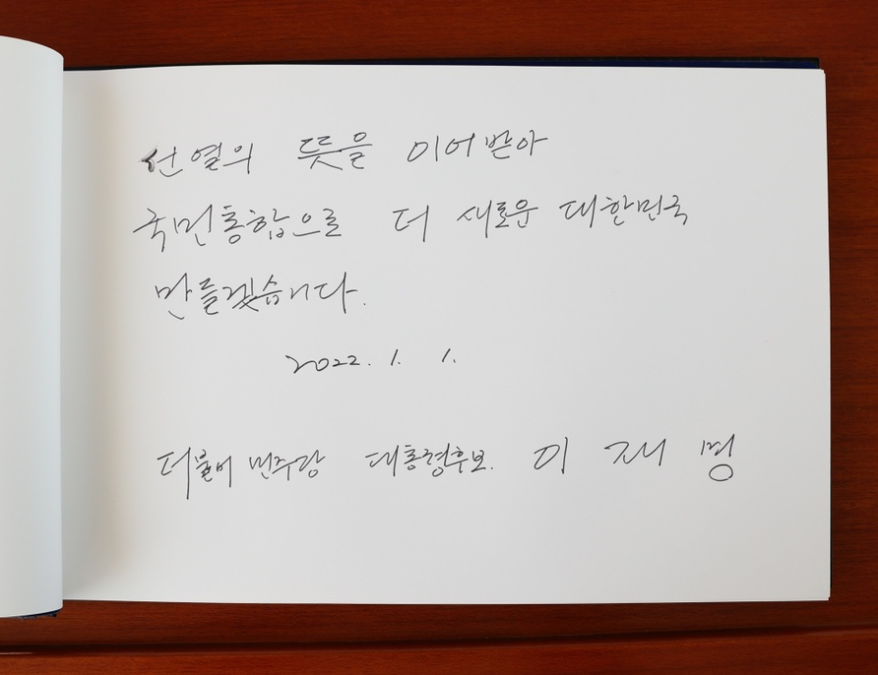 선열의 뜻을 이어받아
국민통합으로 더 새로운 대한민국
만들겠습니다.
2022. 1. 1.
더불어 민주당 대통령후보. 이 재 명